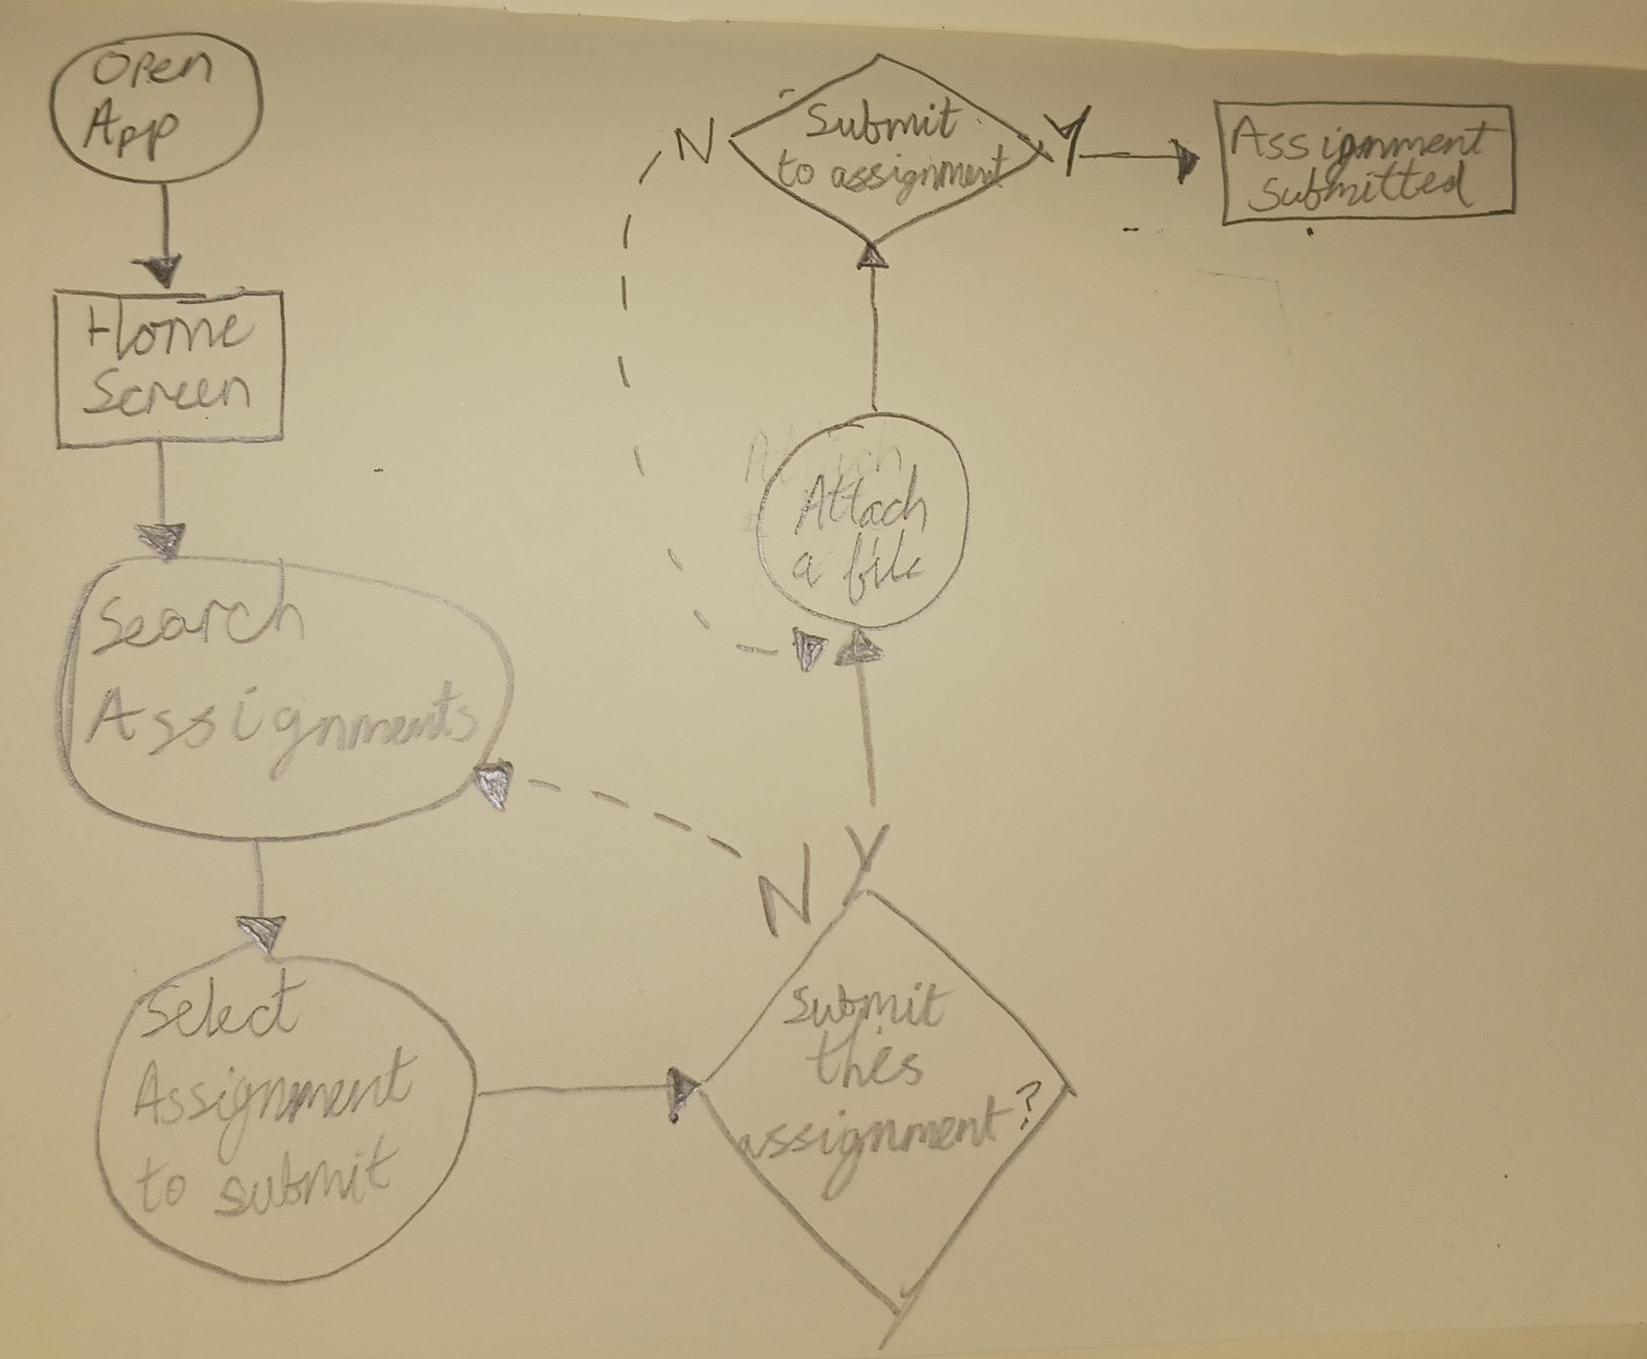 Open
App
Home
Screen
Search
Assignments
Select
Assignment
to submit
Submit
this
assignment?
N
Y
Attach
a file
Submit
to assignment
N
Y
Assignment
Submitted